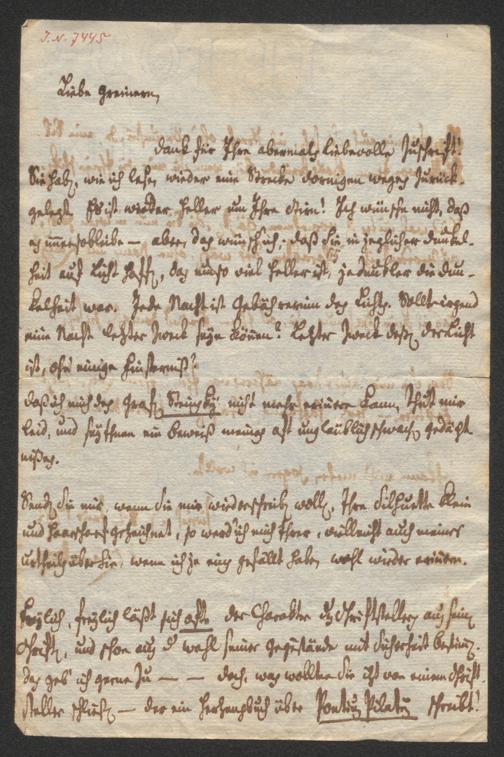 J. N. 7445
Liebe Greinern,
Dank für Ihre abermals liebevolle Zuschrift!
Sie haben, wie ich lese, wieder eine Strecke dornigen weges zurück-
gelegt. Es ist wieder heller um Ihre Stirn! Ich wünsche nicht, daß
es immer so bleibe — aber, das wünsch ich: daß Sie in jeglicher Dunkel-
heit auf Licht hoffen, das um so viel heller ist, je dunkler die Dun-
kelheit war. Jede Nacht ist Gebährerinn des Lichts. Sollte irgend
eine Nacht letzter Zweck seyn können? Letzter Zweck dessen, der Licht
ist, ohne einige Finsterniß?
daß ich mich des Grafen nicht mehr erinnern kann, thut mir
leid, und sey Ihnen ein beweis meines oft unglaublich schwachen gedächt
nißes.
Senden Sie mir, wenn Sie mir wiederschreiben wollen, Ihre Silhuette klein
und gezeichnet, so werd ich mich Ihrer, vielleicht auch meines
urtheils über Sie, wenn ich je eins gefällt habe, wohl wieder erinnern.
freylich, freylich läßt sich oft der Charakter des Schriftstellers aus seinen
Schriften, und schon aus der wahl seiner gegenstände mit Sicherheit bestimmen.
das geb' ich gerne zu — — doch, was wollten Sie itzt von einem Schrift-
steller schließen — der ein Herzensbuch über Pontius Pilatus schreibt!